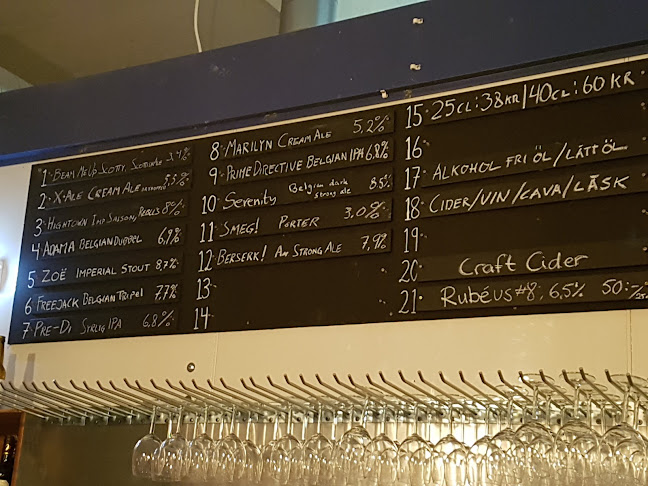 1 Beam Me Up Scotty, 3,4%
2 X-Ale Cream Ale 5,3%
3 Hightown Imp Saison, 8%
4 Adama Belgian Dubbel 6,9%
5 Zoë Imperial Stout 8,7%
6 Freejack Belgian Tripel 7,7%
7 Pre-D! Syrlig IPA 6,8%
8 Marilyn Cream Ale 5,2%
9 Prime Directive Belgian IPA 6,8%
10 Serenity Belgian dark strong ale 8,5%
11 Smeg! Porter 3,0%
12 Berserk! Am Strong Ale 7,9%
13
14
15 25cl:38kr/40cl:60kr
16
17 Alkohol fri öl/lättöl
18 Cider/vin/cava/läsk
19
20 Craft Cider
21 Rubéus #8, 6,5% 50:-